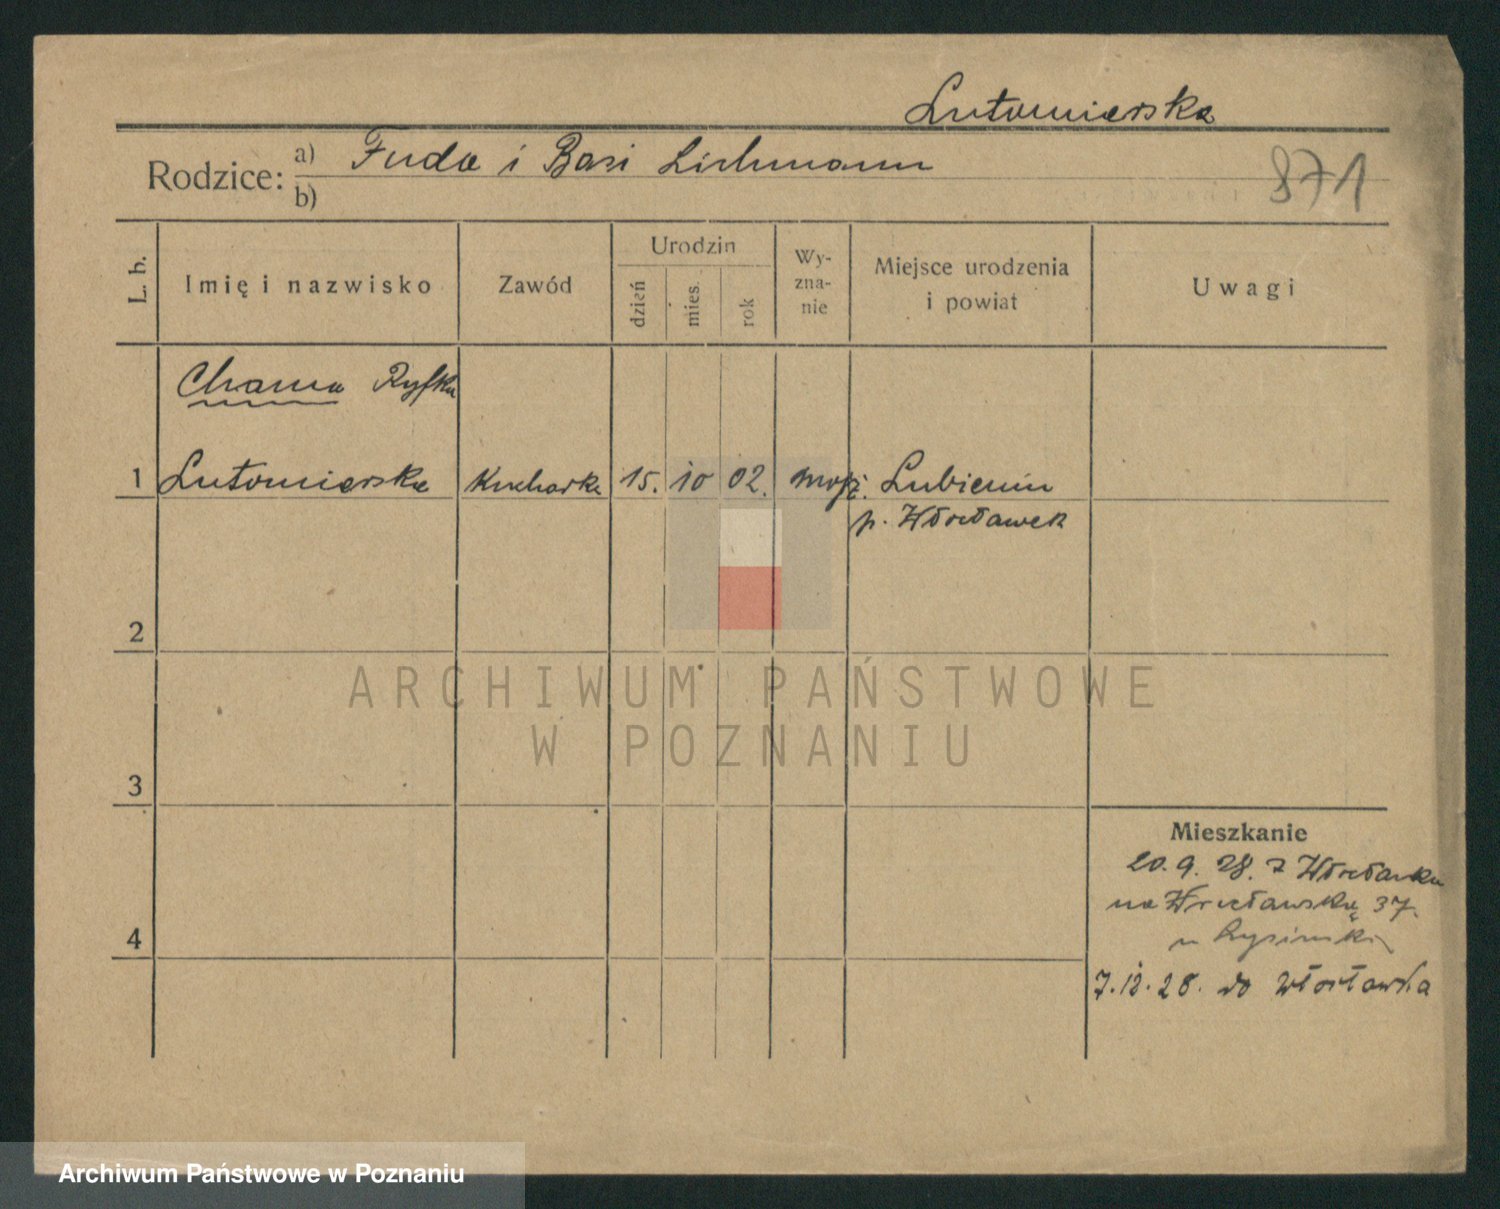 Lutomierska
Rodzice: a) Juda i Basi Lichmann
b)
871
L. b.
Imię i nazwisko
Zawód
Urodzin
dzień
mies.
rok
Wy-
zna-
nie
Miejsce urodzenia
i powiat
Uwagi
Chama Ryfka
1 Lutomierska Kucharka 15. 10 02. mojż. Lubienin
p. Włocławek
2
ARCHIWUM PAŃSTWOWE
W POZNANIU
3
Mieszkanie
20. 9. 28. z Włocławka
na Wrocławską 37.
4
u
7. 12. 28. do Włocławka
Archiwum Państwowe w Poznaniu